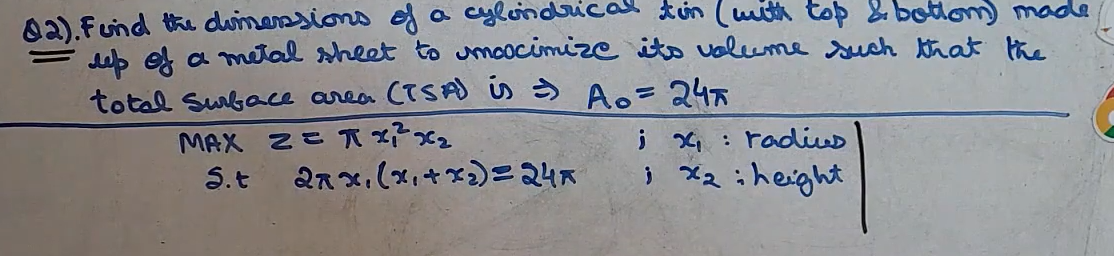 Q2). Find the dimensions of a cylindrical tin (with top & bottom) made
up of a metal sheet to maximize its volume such that the
total surface area (TSA) is ⇒ A₀ = 24π
MAX Z = π x₁² x₂ ; x₁ : radius
S.t 2π x₁ (x₁ + x₂) = 24π ; x₂ : height